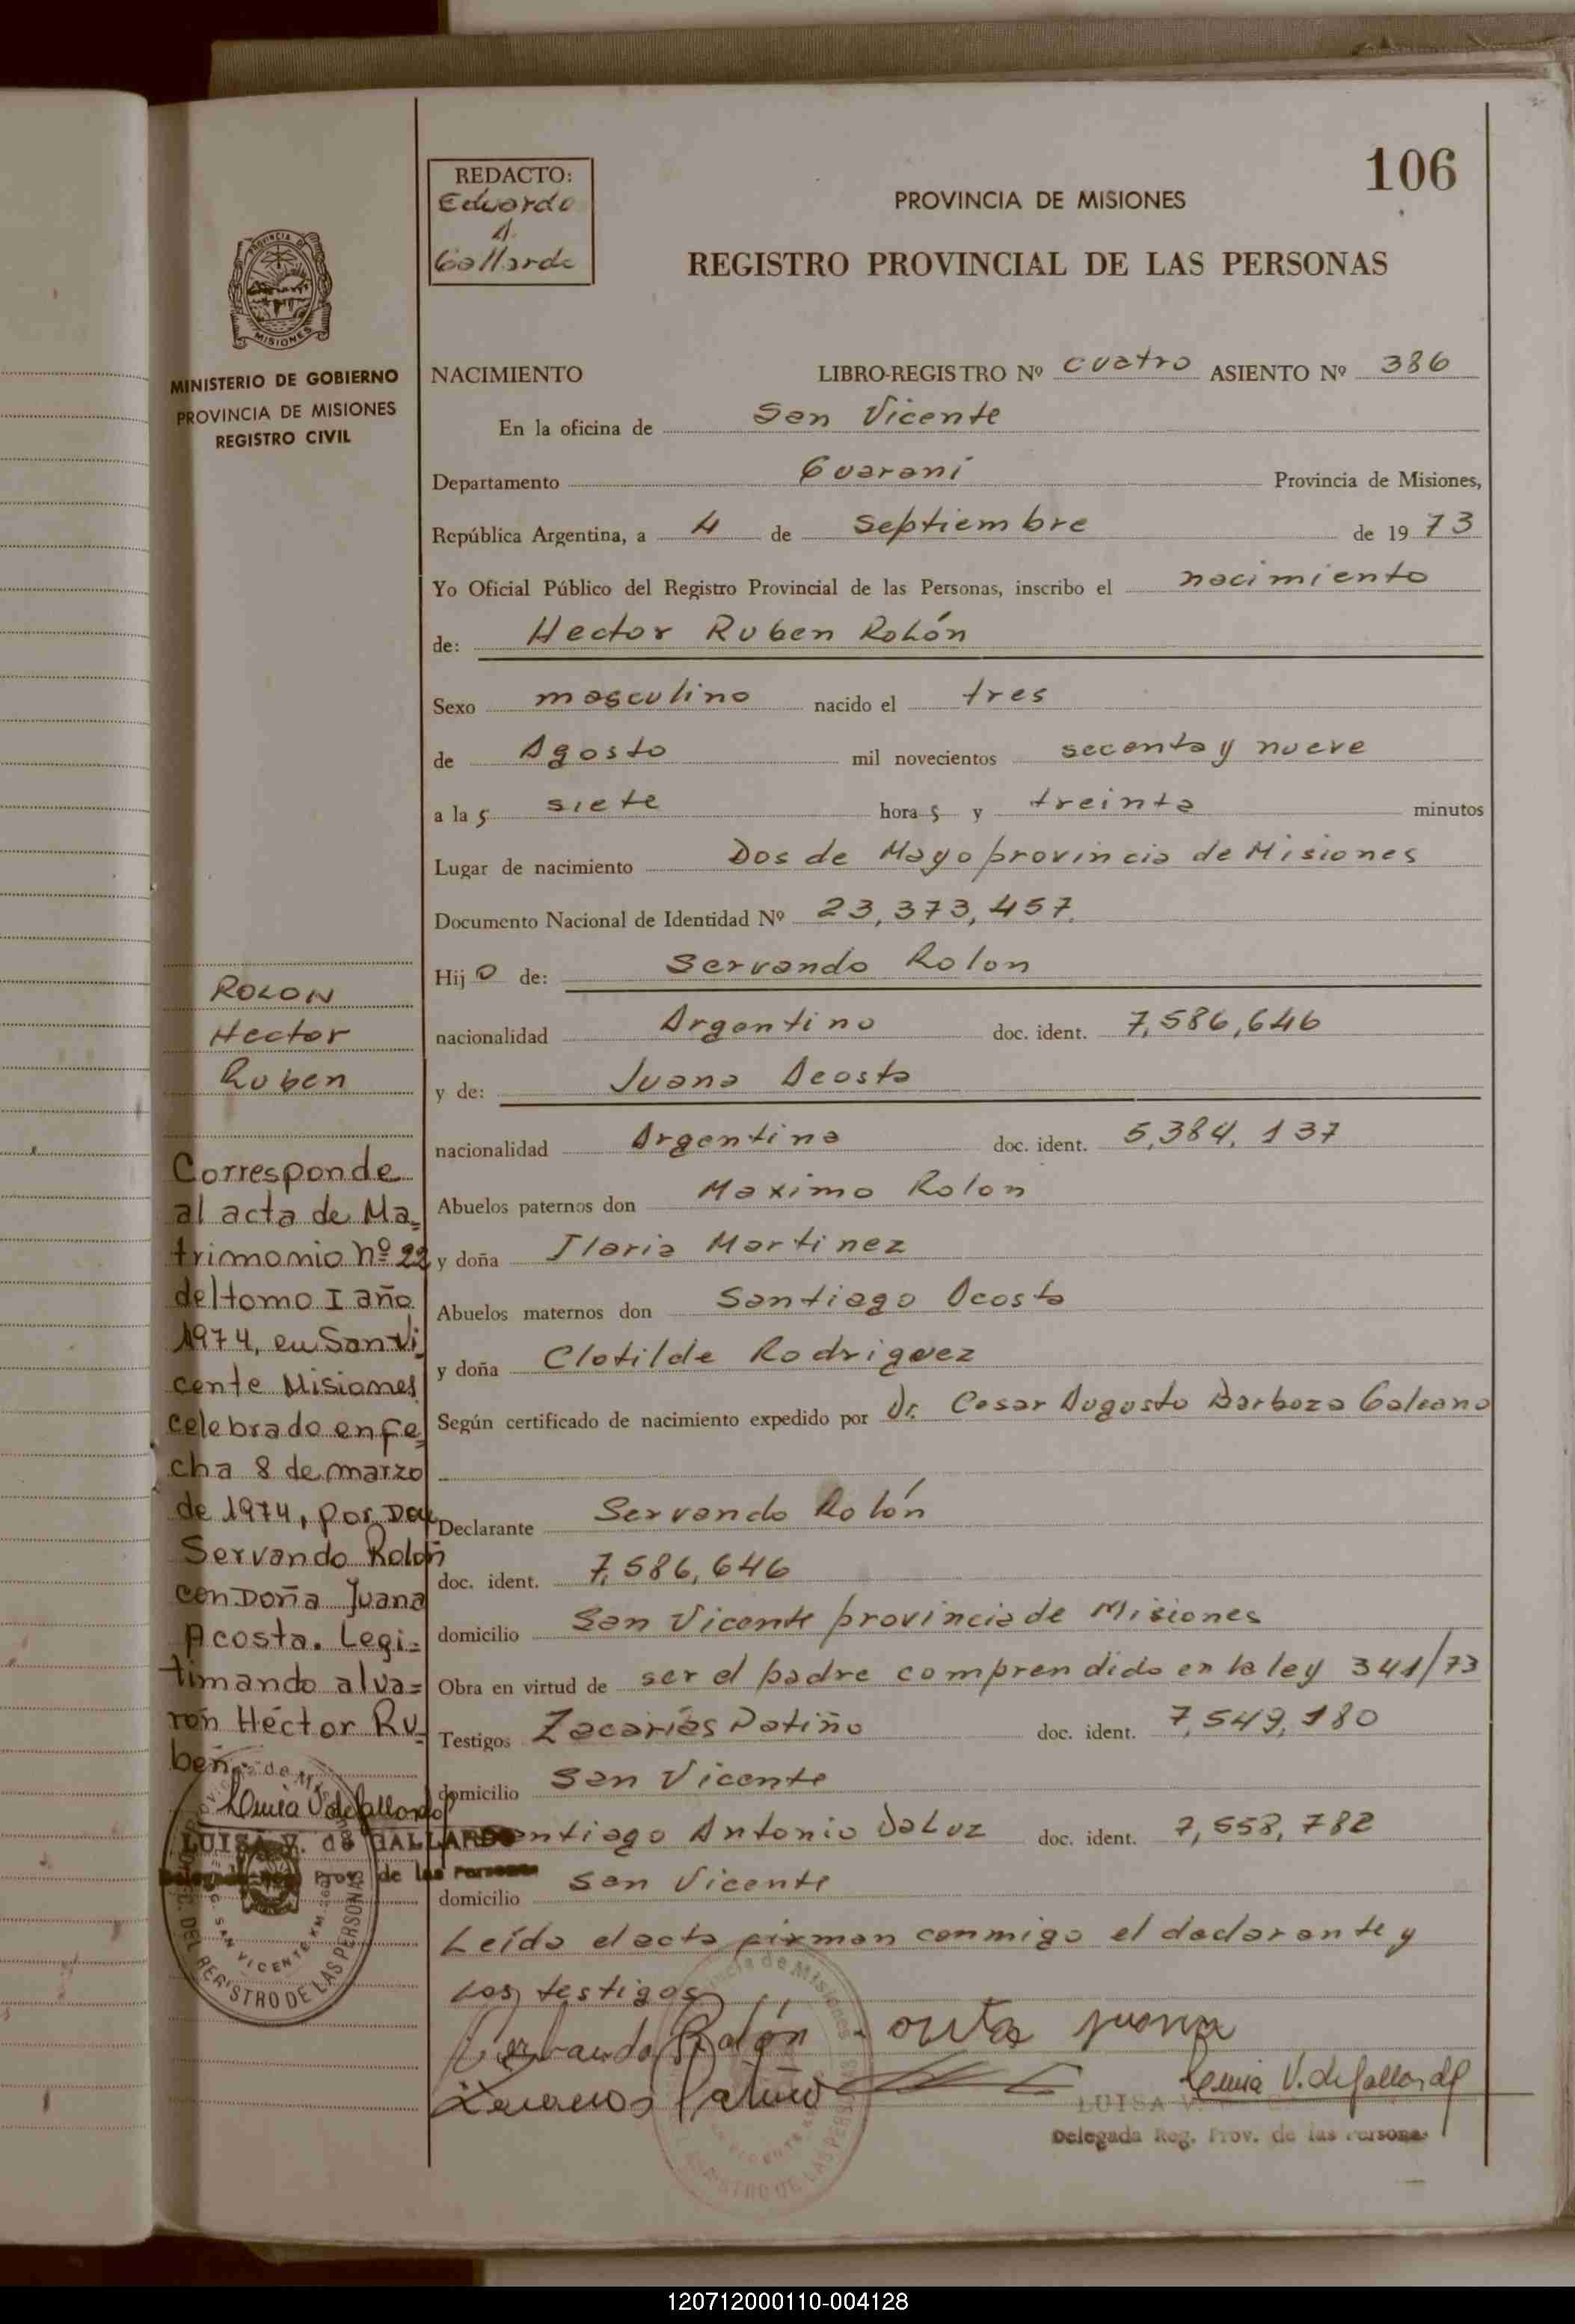 106
REDACTO:
Eduardo
A.
Gallardo
PROVINCIA DE MISIONES
REGISTRO PROVINCIAL DE LAS PERSONAS
PROVINCIA DE
MISIONES
MINISTERIO DE GOBIERNO
PROVINCIA DE MISIONES
REGISTRO CIVIL
NACIMIENTO LIBRO-REGISTRO Nº cuatro ASIENTO Nº 386
En la oficina de San Vicente
Departamento Guaraní Provincia de Misiones,
República Argentina, a 4 de Septiembre de 1973
Yo Oficial Público del Registro Provincial de las Personas, inscribo el nacimiento
de: Hector Ruben Rolón
Sexo masculino nacido el tres
de Agosto mil novecientos secenta y nueve
a la s siete hora s y treinta minutos
Lugar de nacimiento Dos de Mayo provincia de Misiones
Documento Nacional de Identidad Nº 23,373,457.
Hij o de: Servando Rolon
nacionalidad Argentino doc. ident. 7,586,646
y de: Juana Acosta
nacionalidad Argentina doc. ident. 5,384,137
Abuelos paternos don Maximo Rolon
y doña Ilaria Martinez
Abuelos maternos don Santiago Acosta
y doña Clotilde Rodriguez
Según certificado de nacimiento expedido por Dr. Cesar Augusto Barboza Galeano
Declarante Servando Rolón
doc. ident. 7,586,646
domicilio San Vicente provincia de Misiones
Obra en virtud de ser el padre comprendido en la ley 341/73
Testigos Zacarías Patiño doc. ident. 7,549,180
domicilio San Vicente
Santiago Antonio DaLuz doc. ident. 7,558,782
domicilio San Vicente
Leída el acta firman conmigo el declarante y
los testigos
Servando Rolón
Zacarias Patiño
Luisa V. de Gallardo
LUISA V.
Delegada Reg. Prov. de las Personas
ROLON
Hector
Ruben
Corresponde
al acta de Ma=
trimonio nº 22
del tomo I año
1974, en San Vi
cente Misiones
celebrado en fe=
cha 8 de marzo
de 1974, por Don
Servando Rolon
con Doña Juana
Acosta. Legi=
timando al va=
ron Héctor Ru=
ben.
Luisa V de Gallardo
LUISA V. de GALLARDO
Delegada Reg. Prov. de las Personas
SAN VICENTE KM.
REGISTRO DE LAS PERSONAS
120712000110-004128